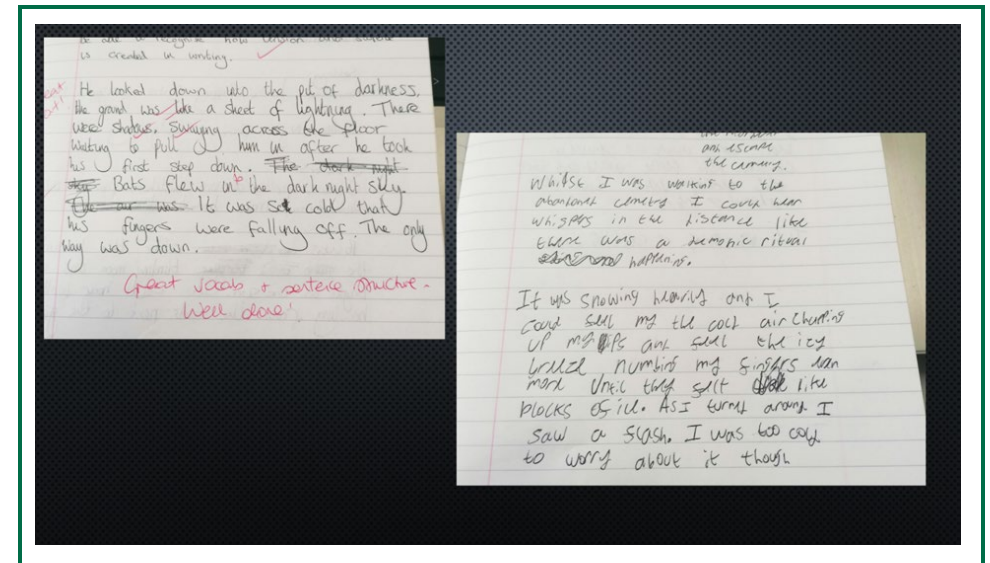 be able to recognise how tension and suspense
is created in writing.
He looked down into the pit of darkness.
the grand was like a sheet of lightning. There
were shadows, swaying across the floor
waiting to pull him in after he took
his first step down. The dark night
sky Bats flew in the dark night sky.
The air was It was so cold that
his fingers were falling off. The only
way was down.
Great vocab + sentence structure -
Well done!
and escape
the cemetry.
Whilst I was walking to the
abandoned cemetry I could hear
whispers in the distance like
there was a demonic ritual
happening.
It was snowing heavily and I
could feel my the cold air Chapping
up my lips and feel the icy
breeze numbing my fingers even
more Until they felt like
blocks of ice. As I turned around I
saw a flash. I was too cold
to worry about it though